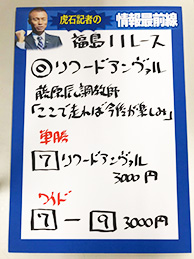 虎石記者の
情報最前線
福島11レース
◎リワードアンヴァル
藤原辰調教師
「ここで走れば今後が楽しみ」
単勝
7 リワードアンヴァル
3000円
ワイド
7 ― 9 3000円